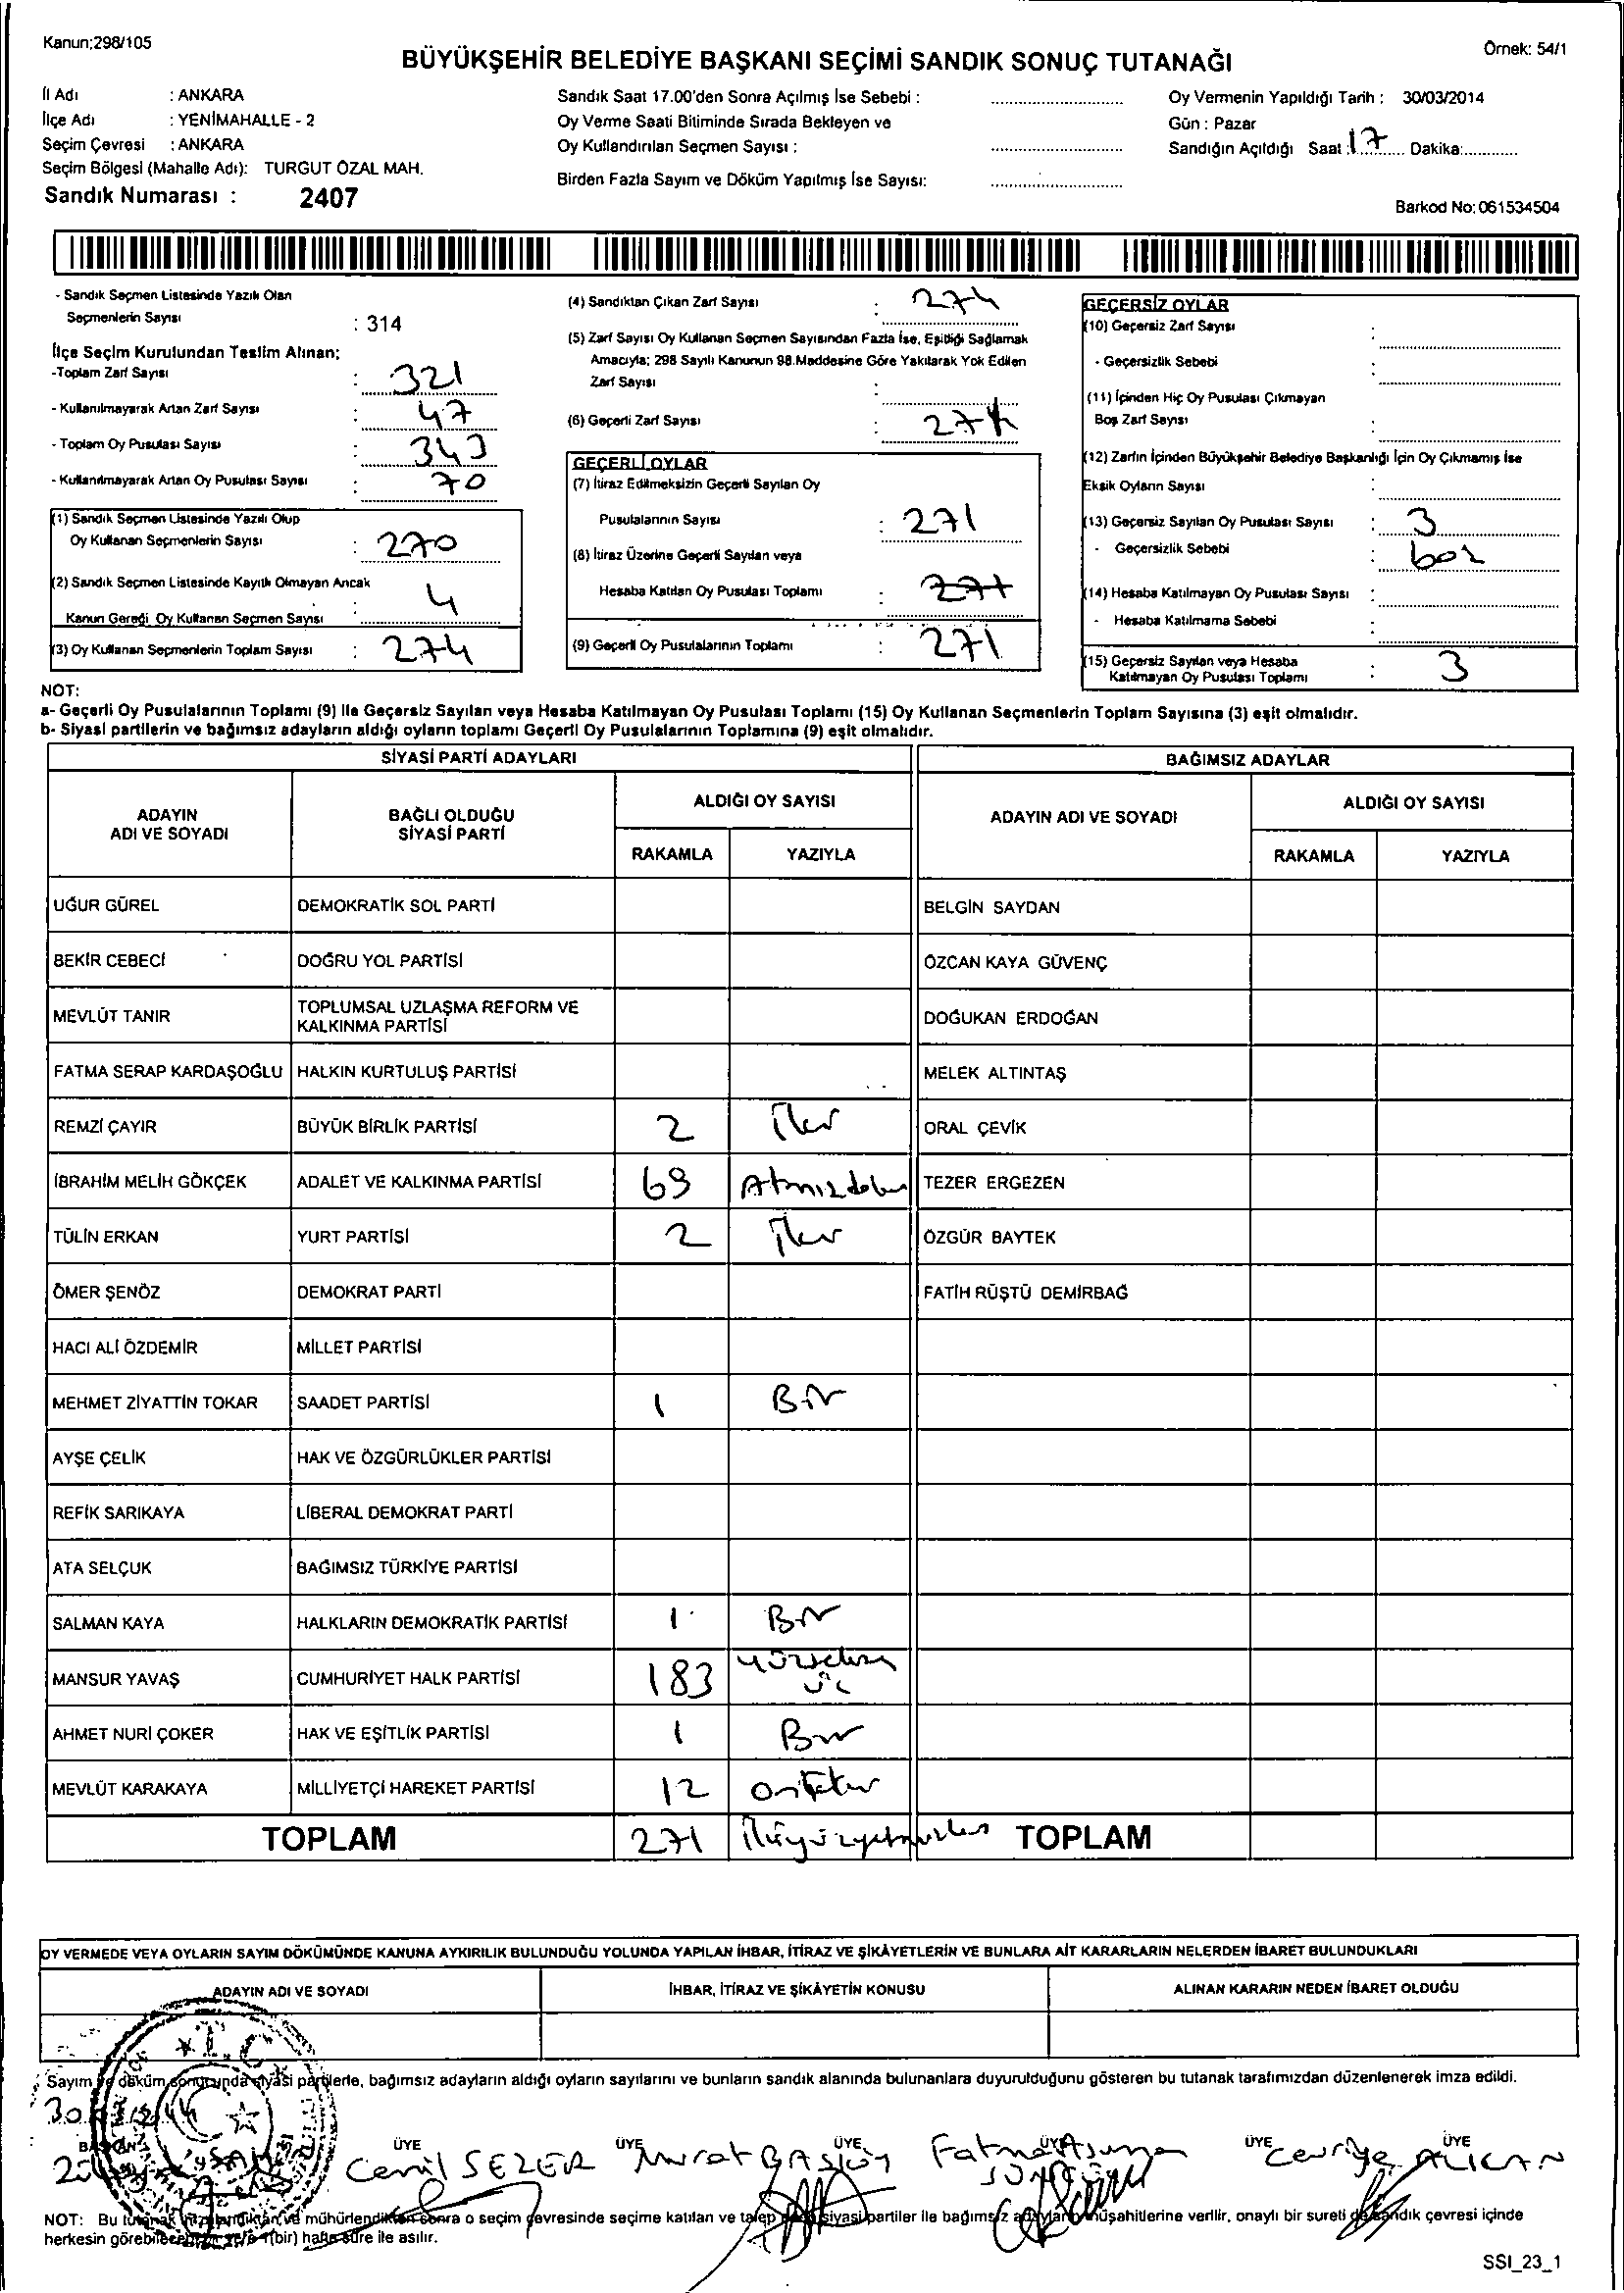 Kanun:298/105
Örnek: 54/1
BÜYÜKŞEHİR BELEDİYE BAŞKANI SEÇİMİ SANDIK SONUÇ TUTANAĞI
İl Adı : ANKARA
İlçe Adı : YENİMAHALLE - 2
Seçim Çevresi : ANKARA
Seçim Bölgesi (Mahalle Adı): TURGUT ÖZAL MAH.
Sandık Numarası : 2407
Sandık Saat 17.00'den Sonra Açılmış İse Sebebi :
Oy Verme Saati Bitiminde Sırada Bekleyen ve
Oy Kullandırılan Seçmen Sayısı :
Birden Fazla Sayım ve Döküm Yapılmış İse Sayısı:
Oy Vermenin Yapıldığı Tarih : 30/03/2014
Gün : Pazar
Sandığın Açıldığı Saat : 17 Dakika:
Barkod No: 061534504
- Sandık Seçmen Listesinde Yazılı Olan
Seçmenlerin Sayısı : 314
İlçe Seçim Kurulundan Teslim Alınan;
-Toplam Zarf Sayısı : 321
- Kullanılmayarak Artan Zarf Sayısı : 47
- Toplam Oy Pusulası Sayısı : 343
- Kullanılmayarak Artan Oy Pusulası Sayısı : 70
(1) Sandık Seçmen Listesinde Yazılı Olup
Oy Kullanan Seçmenlerin Sayısı : 270
(2) Sandık Seçmen Listesinde Kayıtlı Olmayan Ancak
Kanun Gereği Oy Kullanan Seçmen Sayısı : 4
(3) Oy Kullanan Seçmenlerin Toplam Sayısı : 274
(4) Sandıktan Çıkan Zarf Sayısı : 274
(5) Zarf Sayısı Oy Kullanan Seçmen Sayısından Fazla İse, Eşitliği Sağlamak
Amacıyla; 298 Sayılı Kanunun 98.Maddesine Göre Yakılarak Yok Edilen
Zarf Sayısı :
(6) Geçerli Zarf Sayısı : 274
GEÇERLİ OYLAR
(7) İtiraz Edilmeksizin Geçerli Sayılan Oy
Pusulalarının Sayısı : 271
(8) İtiraz Üzerine Geçerli Sayılan veya
Hesaba Katılan Oy Pusulası Toplamı : 271
(9) Geçerli Oy Pusulalarının Toplamı : 271
GEÇERSİZ OYLAR
(10) Geçersiz Zarf Sayısı :
- Geçersizlik Sebebi :
(11) İçinden Hiç Oy Pusulası Çıkmayan
Boş Zarf Sayısı :
(12) Zarfın İçinden Büyükşehir Belediye Başkanlığı İçin Oy Çıkmamış İse
Eksik Oyların Sayısı :
(13) Geçersiz Sayılan Oy Pusulası Sayısı : 3
- Geçersizlik Sebebi : boş
(14) Hesaba Katılmayan Oy Pusulası Sayısı :
- Hesaba Katılmama Sebebi :
(15) Geçersiz Sayılan veya Hesaba
Katılmayan Oy Pusulası Toplamı : 3
NOT:
a- Geçerli Oy Pusulalarının Toplamı (9) ile Geçersiz Sayılan veya Hesaba Katılmayan Oy Pusulası Toplamı (15) Oy Kullanan Seçmenlerin Toplam Sayısına (3) eşit olmalıdır.
b- Siyasi partilerin ve bağımsız adayların aldığı oyların toplamı Geçerli Oy Pusulalarının Toplamına (9) eşit olmalıdır.
SİYASİ PARTİ ADAYLARI BAĞIMSIZ ADAYLAR
ADAYIN ADI VE SOYADI BAĞLI OLDUĞU SİYASİ PARTİ ALDIĞI OY SAYISI ADAYIN ADI VE SOYADI ALDIĞI OY SAYISI
RAKAMLA YAZIYLA RAKAMLA YAZIYLA
UĞUR GÜREL DEMOKRATİK SOL PARTİ BELGİN SAYDAN
BEKİR CEBECİ DOĞRU YOL PARTİSİ ÖZCAN KAYA GÜVENÇ
MEVLÜT TANIR TOPLUMSAL UZLAŞMA REFORM VE KALKINMA PARTİSİ DOĞUKAN ERDOĞAN
FATMA SERAP KARDAŞOĞLU HALKIN KURTULUŞ PARTİSİ MELEK ALTINTAŞ
REMZİ ÇAYIR BÜYÜK BİRLİK PARTİSİ 2 İki ORAL ÇEVİK
İBRAHİM MELİH GÖKÇEK ADALET VE KALKINMA PARTİSİ 69 TEZER ERGEZEN
TÜLİN ERKAN YURT PARTİSİ 2 İki ÖZGÜR BAYTEK
ÖMER ŞENÖZ DEMOKRAT PARTİ FATİH RÜŞTÜ DEMİRBAĞ
HACI ALİ ÖZDEMİR MİLLET PARTİSİ
MEHMET ZİYATTİN TOKAR SAADET PARTİSİ 1 Bir
AYŞE ÇELİK HAK VE ÖZGÜRLÜKLER PARTİSİ
REFİK SARIKAYA LİBERAL DEMOKRAT PARTİ
ATA SELÇUK BAĞIMSIZ TÜRKİYE PARTİSİ
SALMAN KAYA HALKLARIN DEMOKRATİK PARTİSİ 1 Bir
MANSUR YAVAŞ CUMHURİYET HALK PARTİSİ 183 üç
AHMET NURİ ÇOKER HAK VE EŞİTLİK PARTİSİ 1 Bir
MEVLÜT KARAKAYA MİLLİYETÇİ HAREKET PARTİSİ 12
TOPLAM 271 TOPLAM
OY VERMEDE VEYA OYLARIN SAYIM DÖKÜMÜNDE KANUNA AYKIRILIK BULUNDUĞU YOLUNDA YAPILAN İHBAR, İTİRAZ VE ŞİKÂYETLERİN VE BUNLARA AİT KARARLARIN NELERDEN İBARET BULUNDUKLARI
ADAYIN ADI VE SOYADI İHBAR, İTİRAZ VE ŞİKÂYETİN KONUSU ALINAN KARARIN NEDEN İBARET OLDUĞU
T.C
Sayım ve döküm sonucunda siyasi partilerle, bağımsız adayların aldığı oyların sayılarını ve bunların sandık alanında bulunanlara duyurulduğunu gösteren bu tutanak tarafımızdan düzenlenerek imza edildi.
BAŞKAN ÜYE ÜYE ÜYE ÜYE ÜYE ÜYE
Cemil SEZER Murat Fatma Cevriye ALKAN
NOT: Bu tutanak imzalandıktan ve mühürlendikten sonra o seçim çevresinde seçime katılan ve talep eden siyasi partiler ile bağımsız adayların müşahitlerine verilir, onaylı bir sureti de sandık çevresi içinde
herkesin görebileceği bir yere 1(bir) hafta süre ile asılır.
SSI_23_1